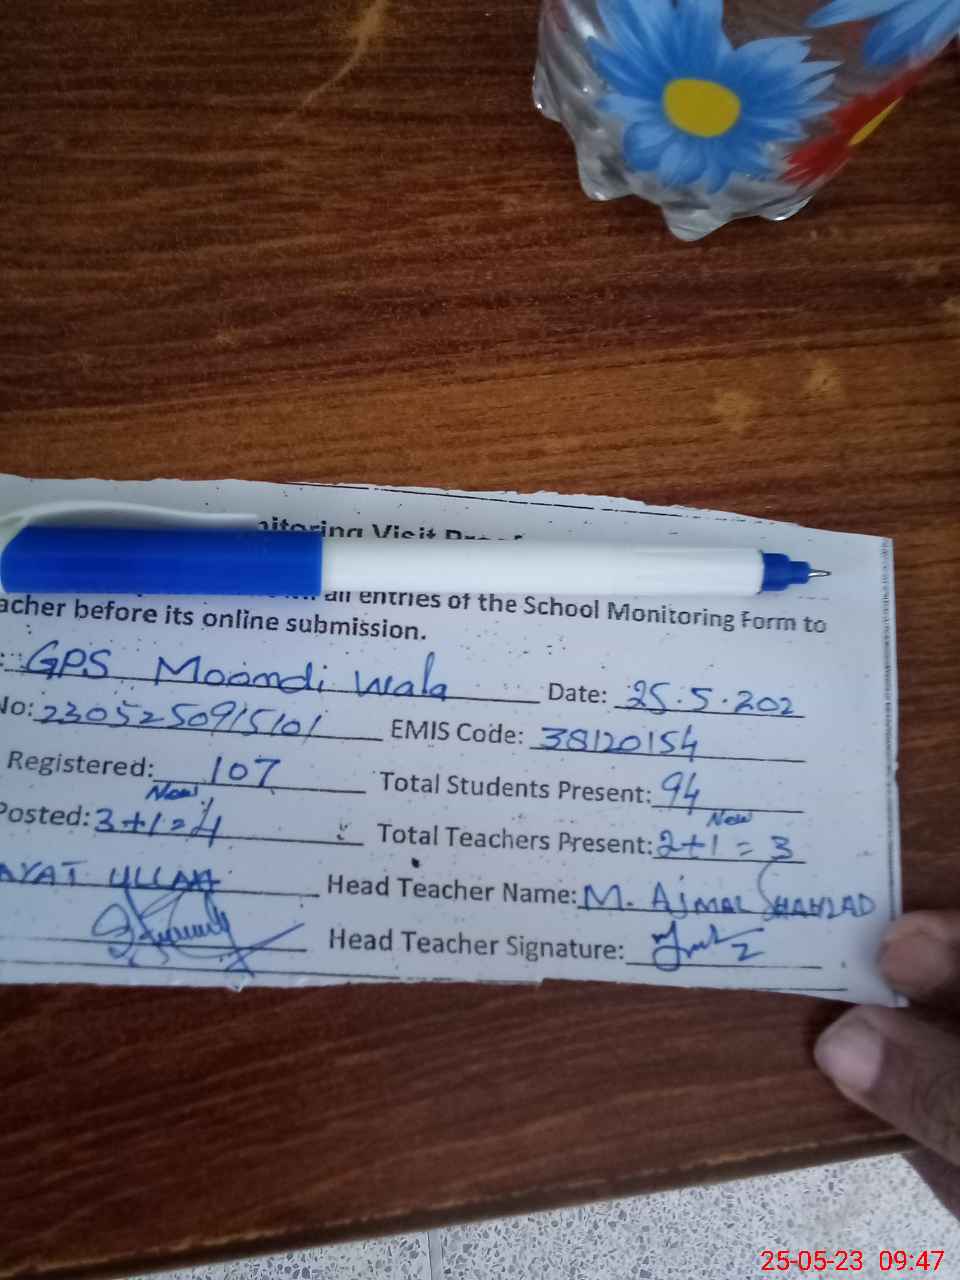 nitoring Visit Proof
all entries of the School Monitoring Form to
acher before its online submission.
: GPS Moondi Wala Date: 25.5.202
No: 2305250915101 EMIS Code: 38120154
Registered: 107 Total Students Present: 94
New New
Posted: 3+1=4 Total Teachers Present: 2+1=3
AYAT ULLAH Head Teacher Name: M. AJMAL SHAHZAD
Head Teacher Signature:
25-05-23 09:47